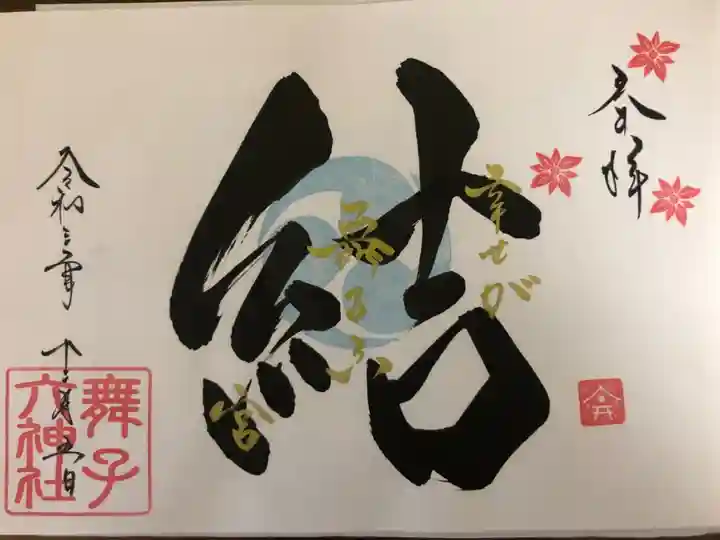 奉拝
結
幸せが
舞子ふ
宮
令和三年 十二月五日
舞子
六神社